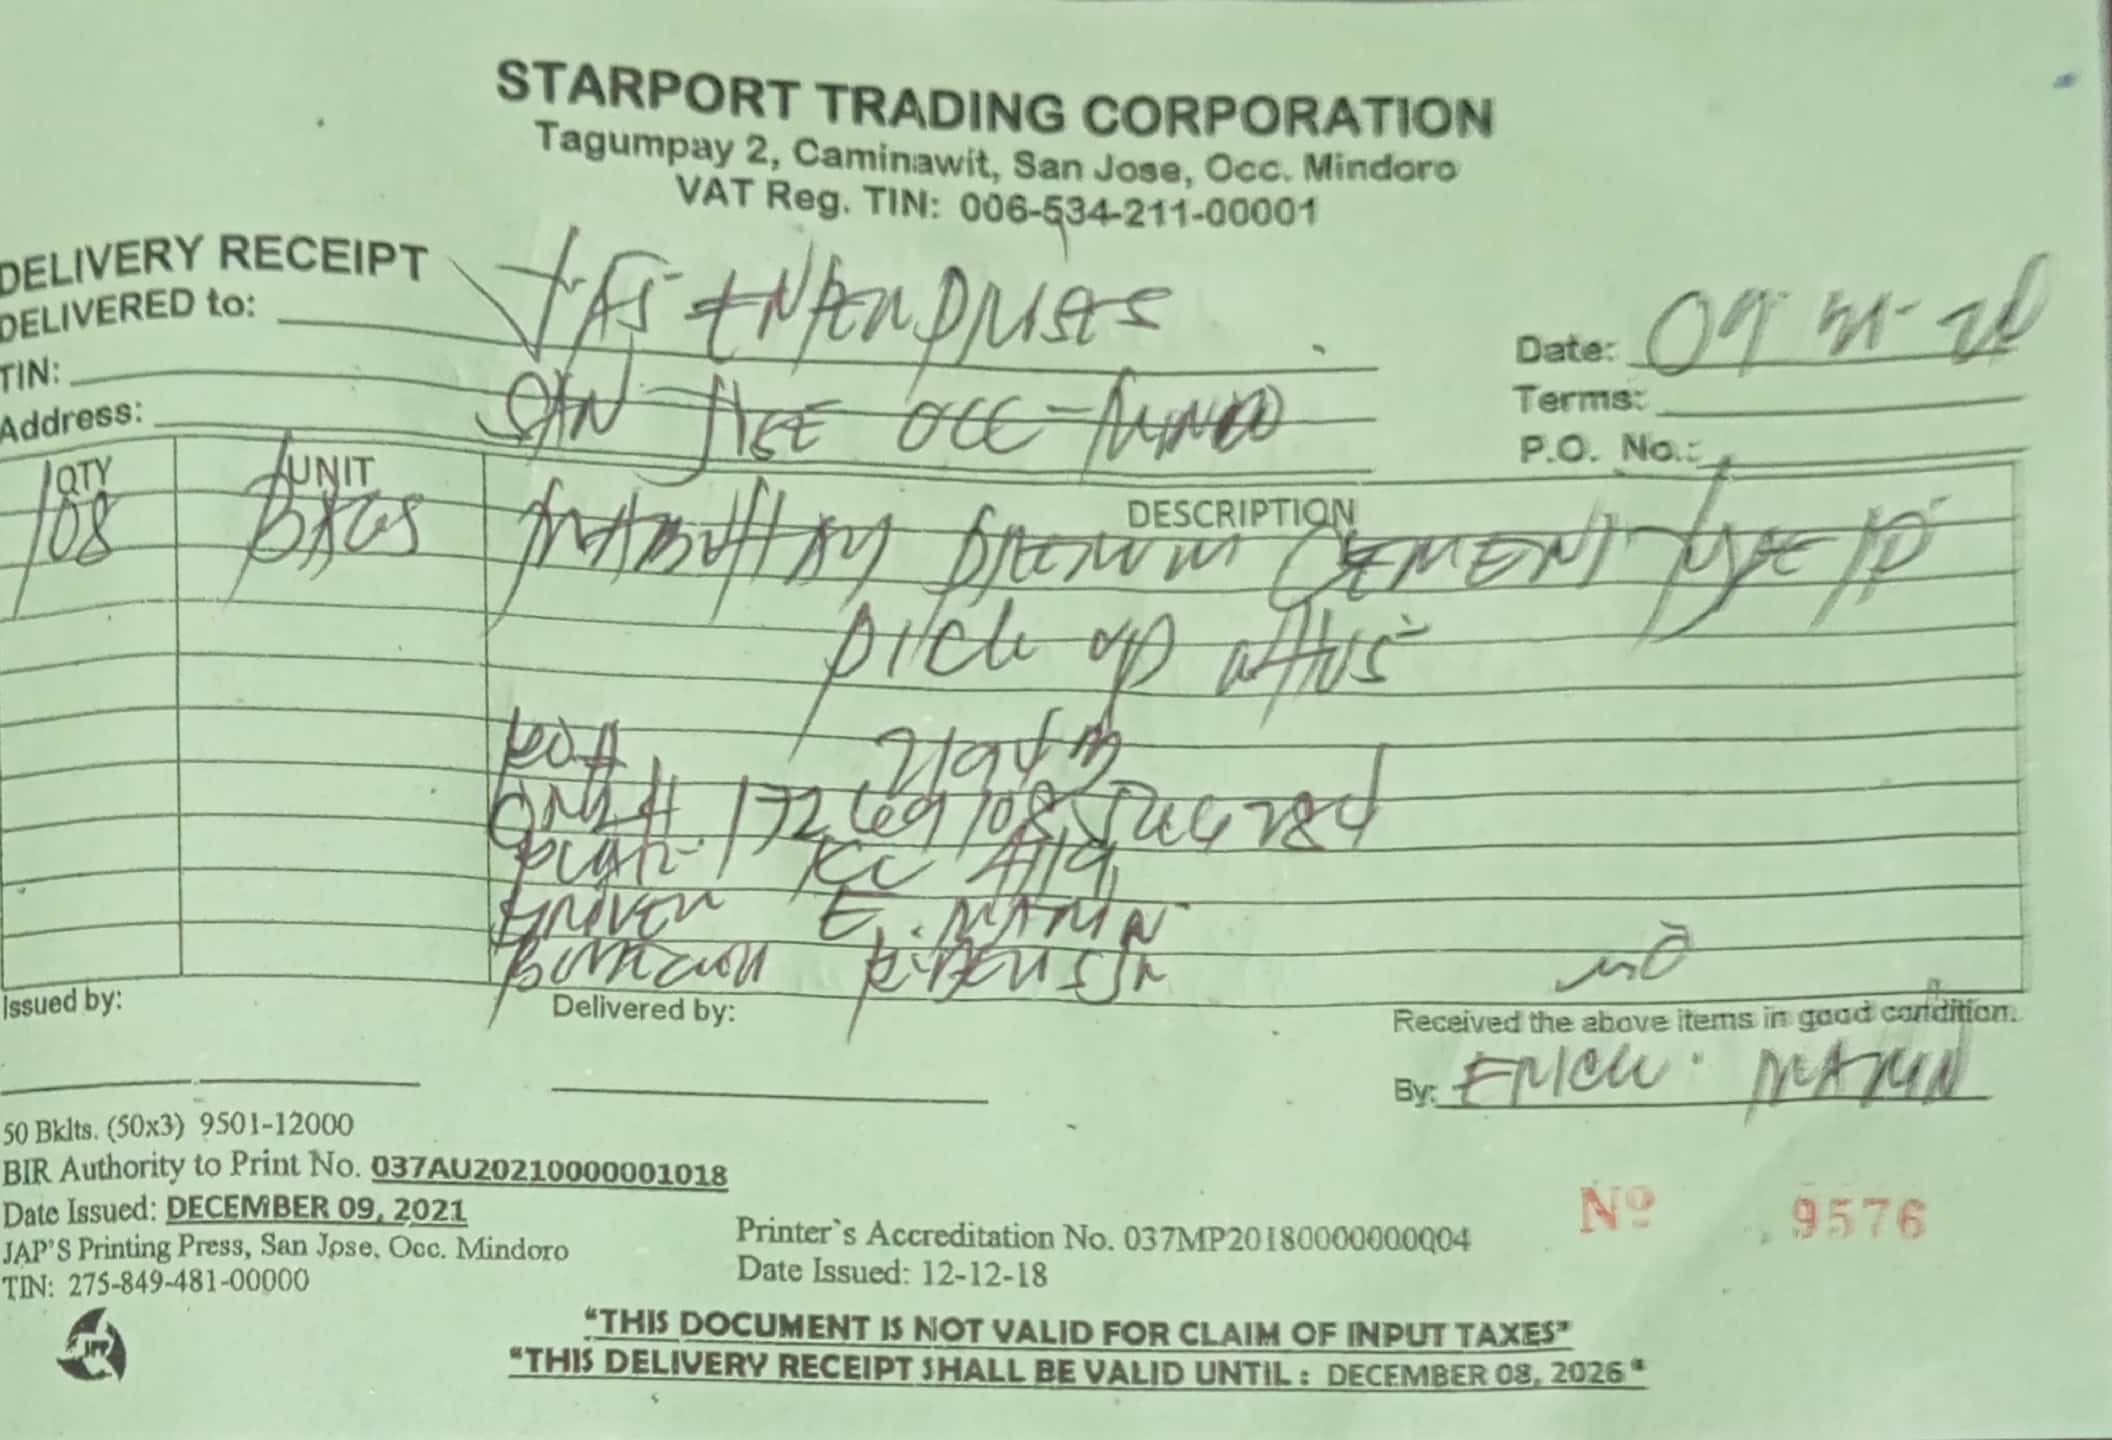 STARPORT TRADING CORPORATION
Tagumpay 2, Caminawit, San Jose, Occ. Mindoro
VAT Reg. TIN: 006-534-211-00001
DELIVERY RECEIPT
DELIVERED to: ENTERPRISES
Date: 09
TIN:
Terms:
Address: SAN JOSE OCC
P.O. No.:
QTY UNIT DESCRIPTION
108 BAGS CEMENT TYPE 1P
pick up
DRIVER E. MARIN
Issued by:
Delivered by:
Received the above items in good condition.
By: ERICK MARIN
50 Bklts. (50x3) 9501-12000
BIR Authority to Print No. 037AU20210000001018
Date Issued: DECEMBER 09, 2021
JAP'S Printing Press, San Jose, Occ. Mindoro
TIN: 275-849-481-00000
Printer's Accreditation No. 037MP20180000000004
Date Issued: 12-12-18
Nº 9576
"THIS DOCUMENT IS NOT VALID FOR CLAIM OF INPUT TAXES"
"THIS DELIVERY RECEIPT SHALL BE VALID UNTIL : DECEMBER 08, 2026"